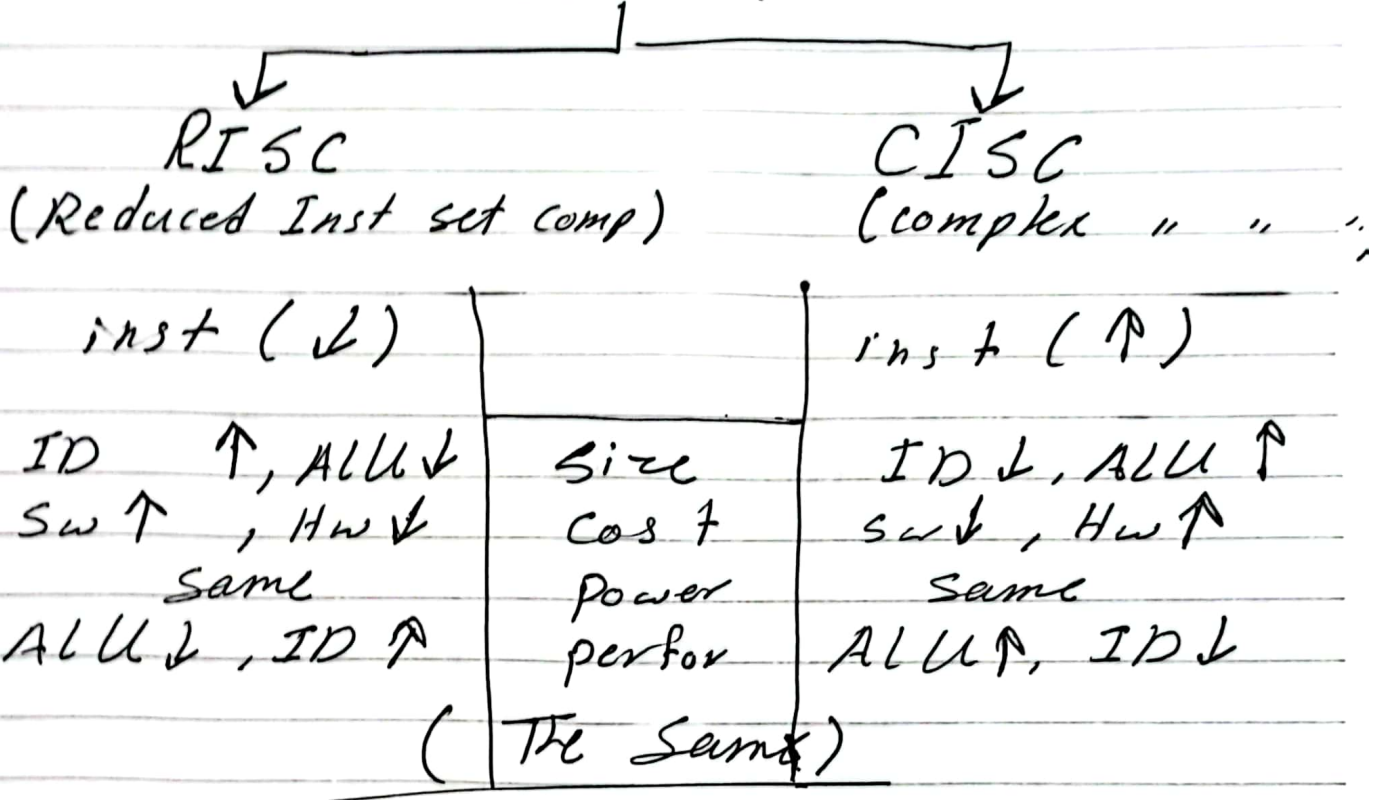 RISC CISC
(Reduced Inst set comp) (complex " " ")
inst (↓) inst (↑)
ID ↑, ALU↓ Size ID↓, ALU↑
Sw↑, Hw↓ Cost Sw↓, Hw↑
Same Power Same
ALU↓, ID↑ perfor ALU↑, ID↓
(The Same)